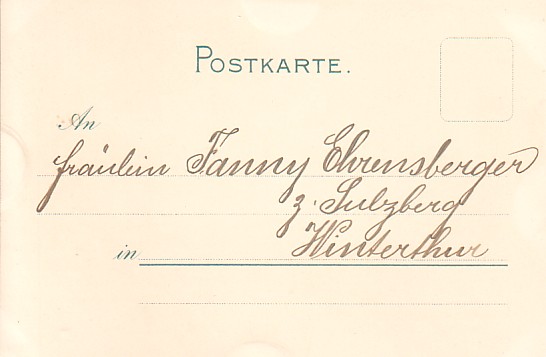 POSTKARTE.
An
Fräulein Fanny Ehrensberger
z. Sulzberg
in Winterthur